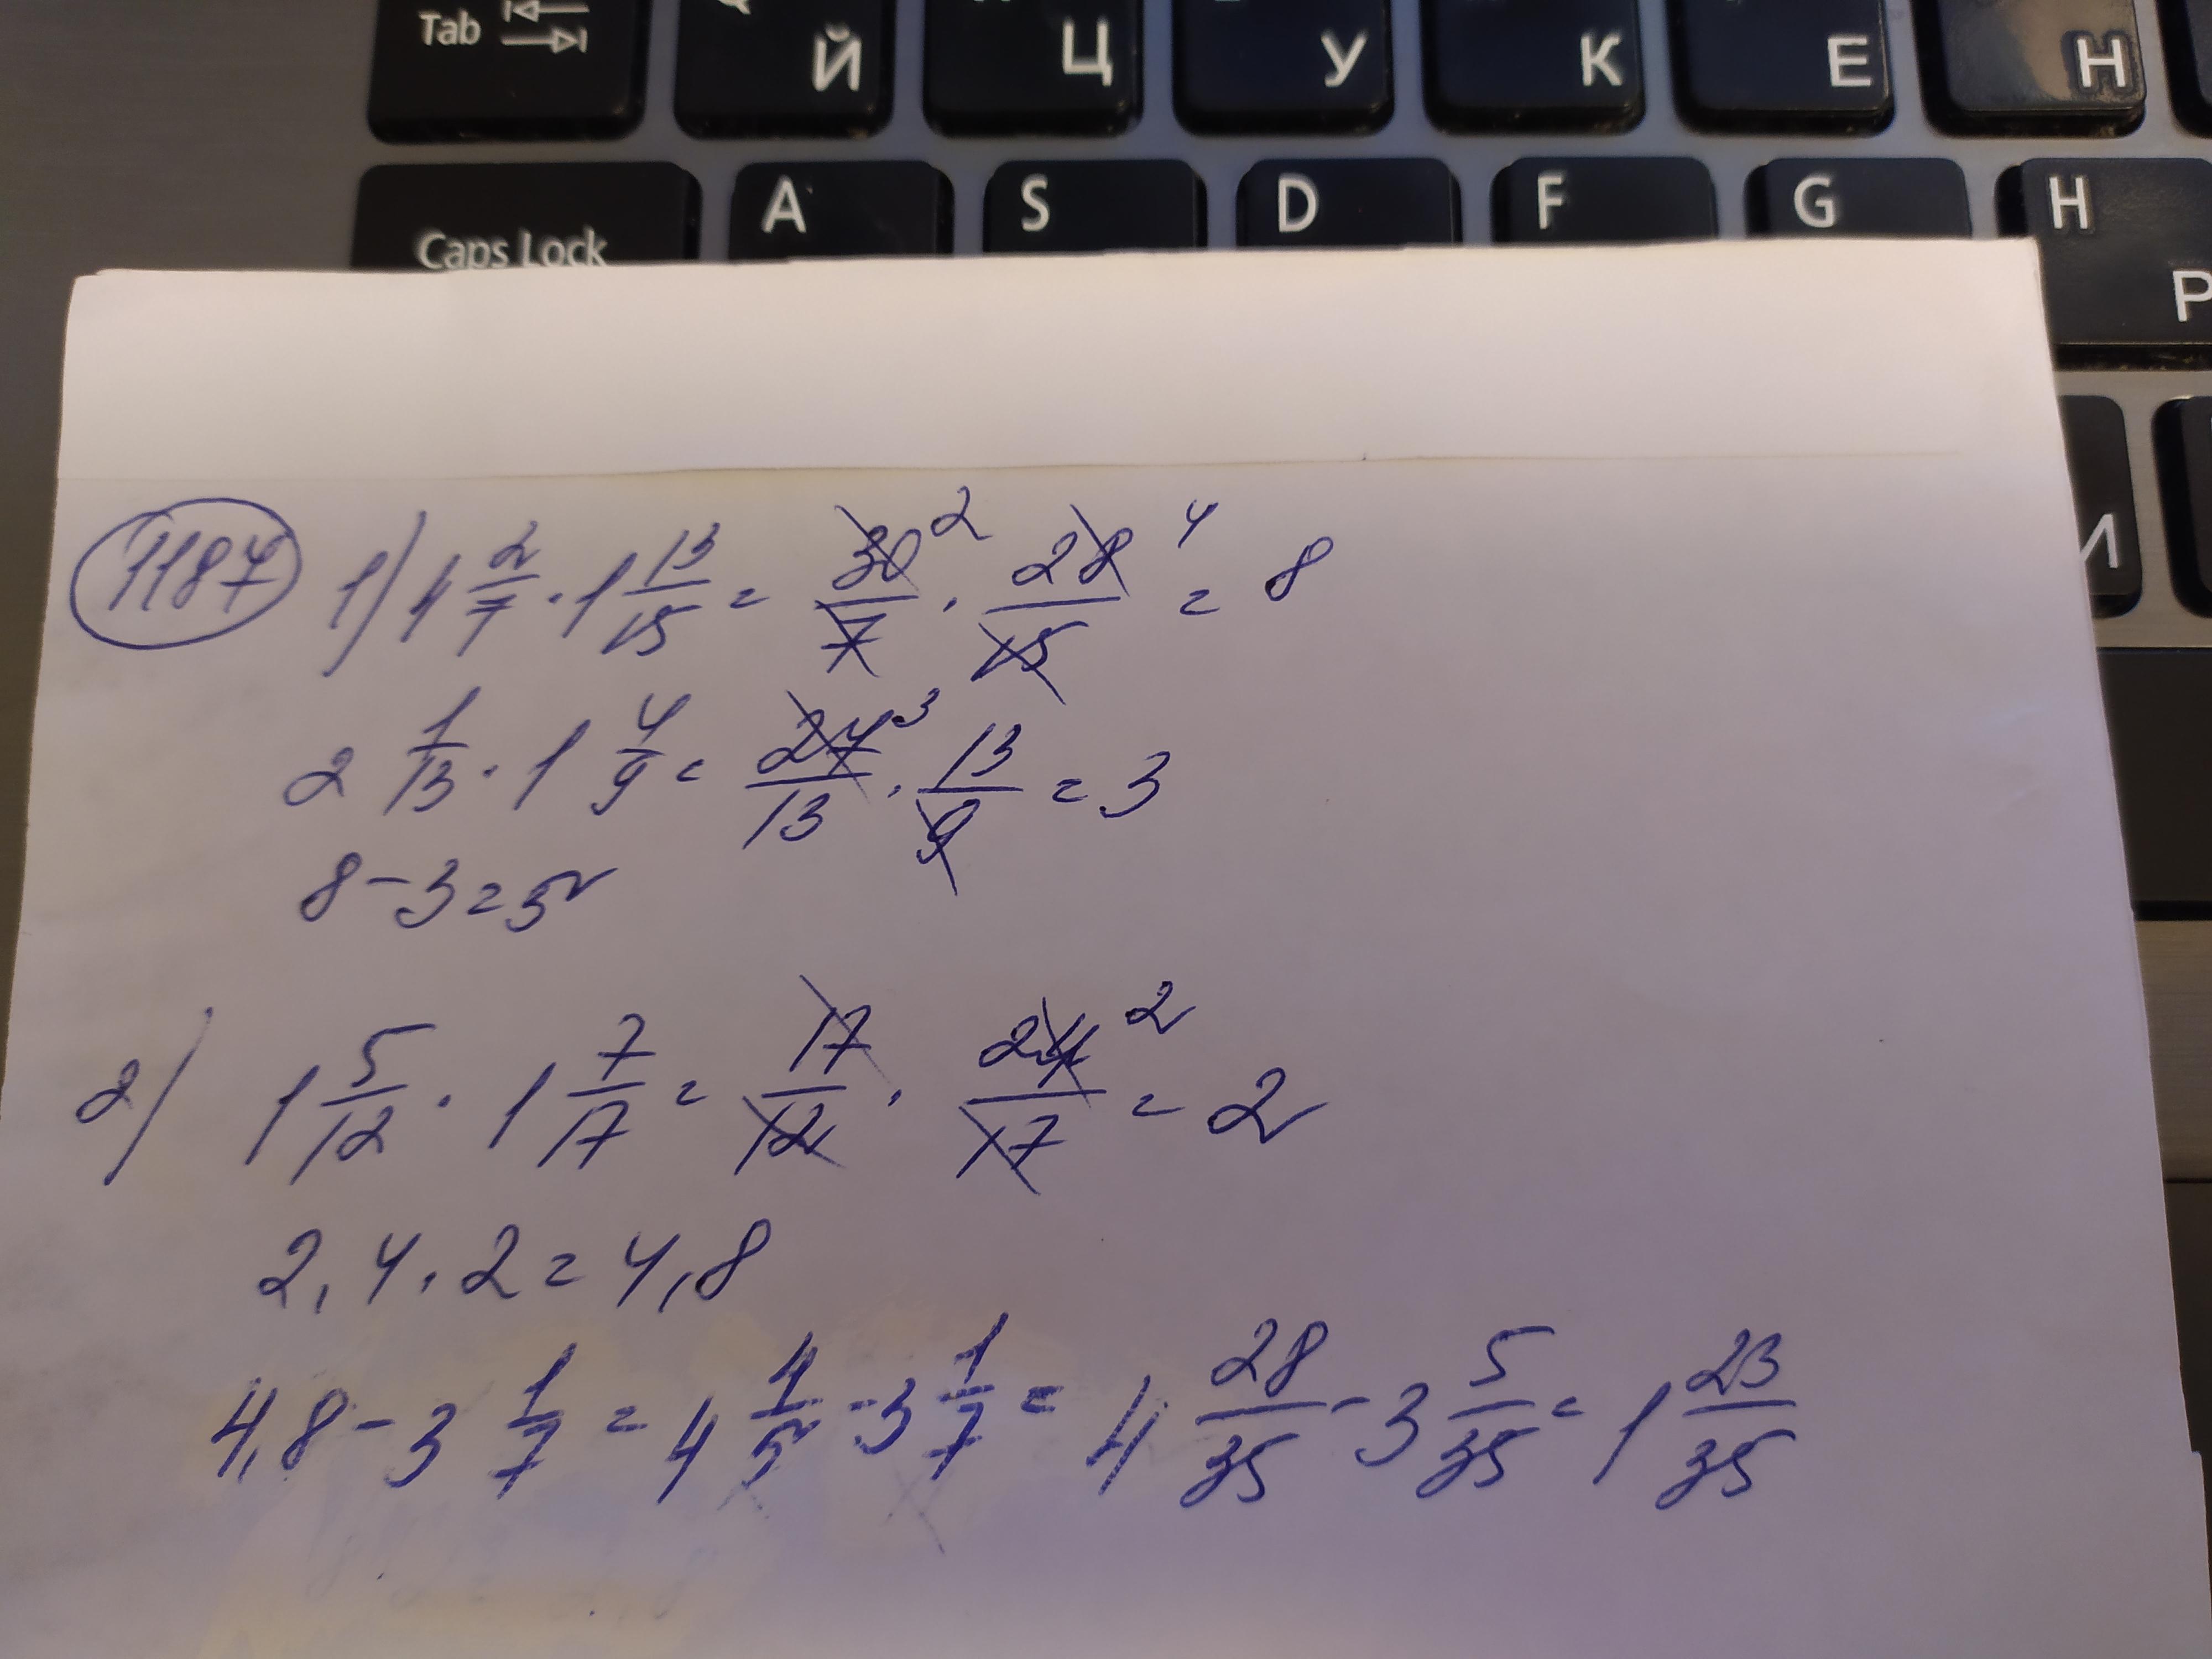 Tab Й Ц У К Е Н
Caps Lock A S D F G H Р
И
1187 1) 4 2/7 · 1 13/15 = 30/7 2 · 28/15 4 = 8
2 1/13 · 1 4/9 = 27/13 3 · 13/9 = 3
8 - 3 = 5
2) 1 5/12 · 1 7/17 = 17/12 · 24/17 2 = 2
2,4 · 2 = 4,8
4,8 - 3 1/7 = 4 4/5 - 3 1/7 = 4 28/35 - 3 5/35 = 1 23/35